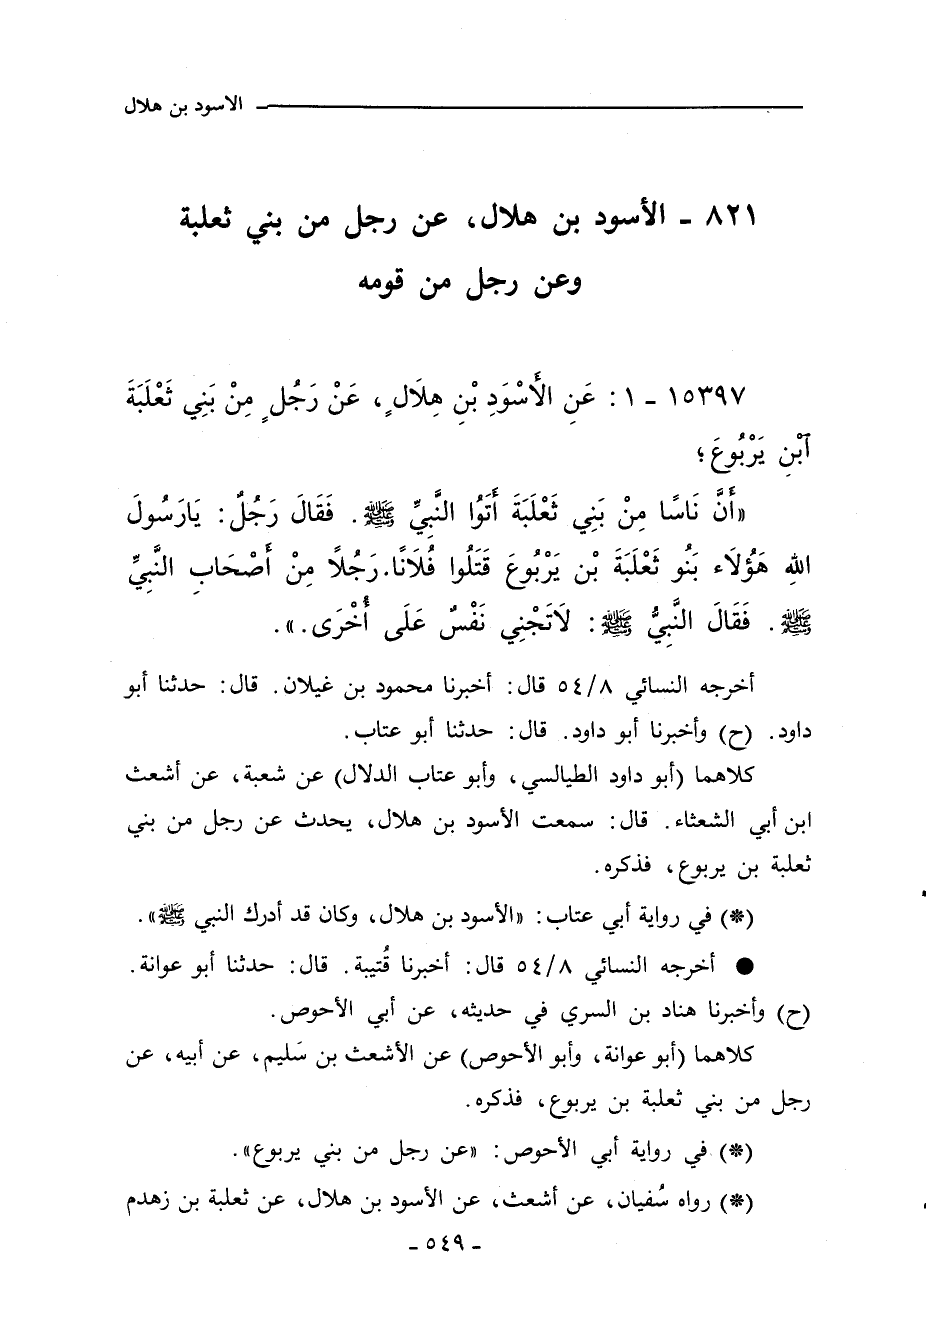 الاسود بن هلال
٨٢١ - الأسود بن هلال، عن رجل من بني ثعلبة
وعن رجل من قومه
١٥٣٩٧ - ١ : عَنِ الأَسْوَدِ بْنِ هِلَالٍ، عَنْ رَجُلٍ مِنْ بَنِي ثَعْلَبَةَ
آبْنِ يَرْبُوعَ؛
«أَنَّ نَاسًا مِنْ بَنِي ثَعْلَبَةَ أَتَوُا النَّبِيَّ ﷺ. فَقَالَ رَجُلٌ: يَارَسُولَ
اللهِ هَؤُلَاء بَنُو ثَعْلَبَةَ بْنِ يَرْبُوعَ قَتَلُوا فُلَانًا. رَجُلًا مِنْ أَصْحَابِ النَّبِيِّ
ﷺ. فَقَالَ النَّبِيُّ ﷺ: لَاتَجْنِي نَفْسٌ عَلَى أُخْرَى.».
أخرجه النسائي ٥٤/٨ قال: أخبرنا محمود بن غيلان. قال: حدثنا أبو
داود. (ح) وأخبرنا أبو داود. قال: حدثنا أبو عتاب.
كلاهما (أبو داود الطيالسي، وأبو عتاب الدلال) عن شعبة، عن أشعث
ابن أبي الشعثاء. قال: سمعت الأسود بن هلال، يحدث عن رجل من بني
ثعلبة بن يربوع، فذكره.
(*) في رواية أبي عتاب: «الأسود بن هلال، وكان قد أدرك النبي ﷺ».
● أخرجه النسائي ٥٤/٨ قال: أخبرنا قُتيبة. قال: حدثنا أبو عوانة.
(ح) وأخبرنا هناد بن السري في حديثه، عن أبي الأحوص.
كلاهما (أبو عوانة، وأبو الأحوص) عن الأشعث بن سَليم، عن أبيه، عن
رجل من بني ثعلبة بن يربوع، فذكره.
(*) في رواية أبي الأحوص: «عن رجل من بني يربوع».
(*) رواه سُفيان، عن أشعث، عن الأسود بن هلال، عن ثعلبة بن زهدم
- ٥٤٩ -